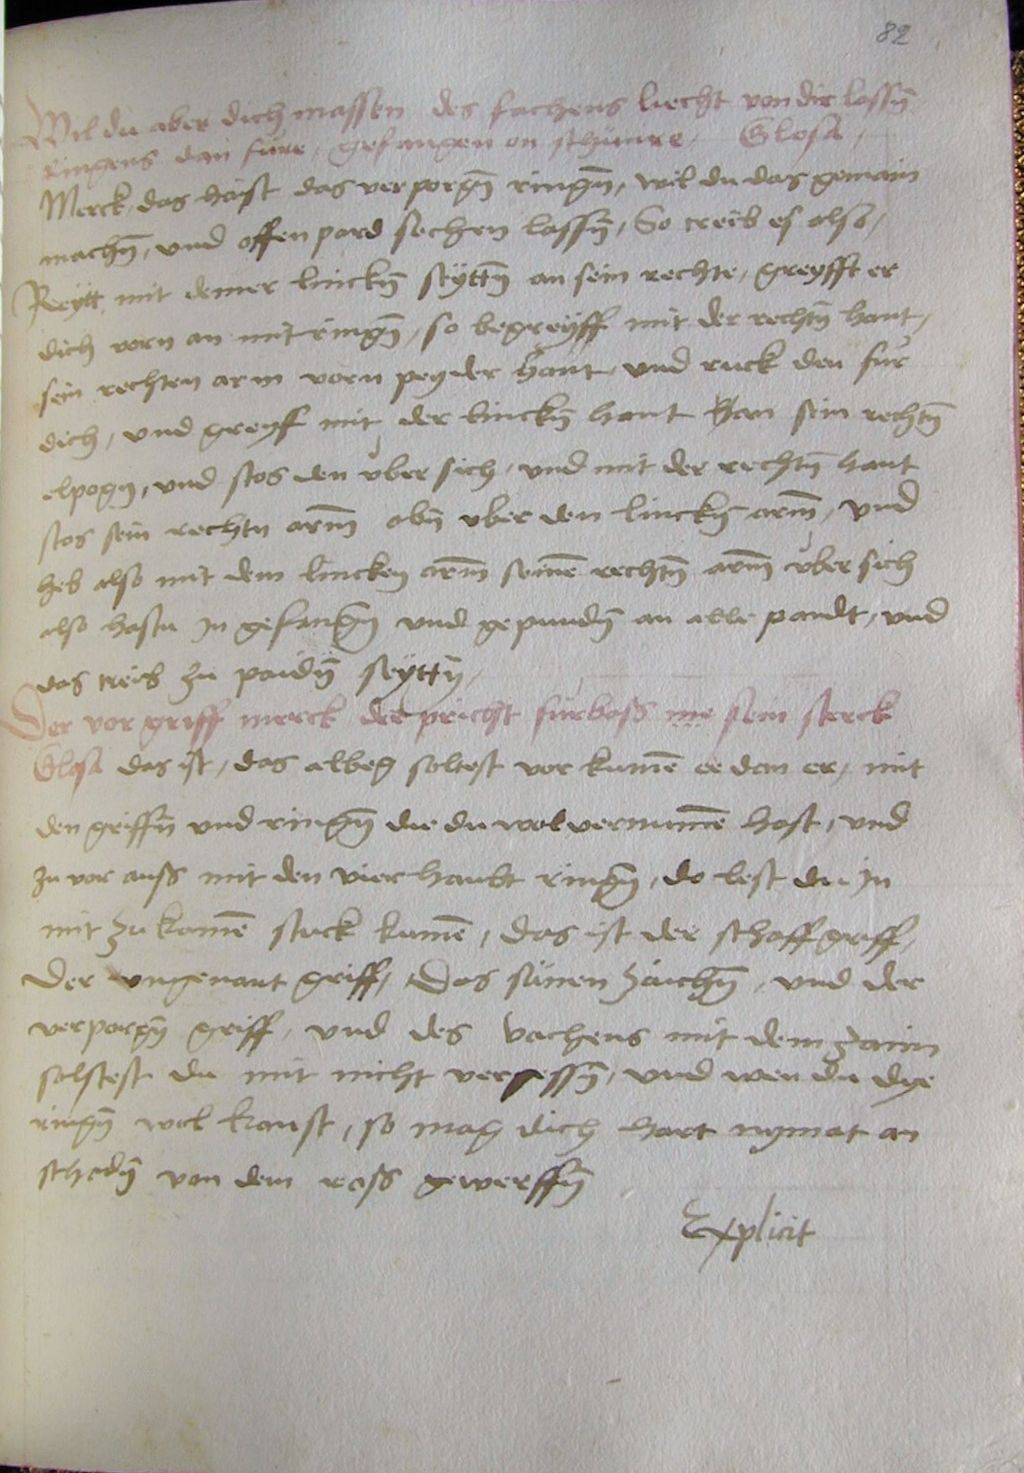 82
Wil du aber dich massen des fachens liecht von dir lassñ
Ringens dan fure, gefangen on schnure. Glosa,
Merck, das haist das verporgñ ringñ, wil du das gemain
machñ, und offen pard sechen lassñ, So treib es also,
Reytt mit deiner linckñ seyttñ an sein rechte, greyfft er
dich vorn an mit ringñ, so begreyff mit der rechtñ hant,
sein rechten arm vorn pey der hant, und ruck den fur
dich, und greyf mit der linckñ hant an sein rechtñ
elpogñ, und stos den uber sich, und mit der rechtñ hant
stos sein rechtn arm̄ obñ uber den linckñ arm̄, und
heb also mit dem lincken arm̄ seinē rechtñ arm̄ uber sich
also hastu In gefangñ und gepundñ an alle pandt, und
das treib zu paidñ seyttñ,
Der vor griff merck der pricht furbass sein sterck
Glosa das ist, das albeg soltest vor kumē ee dan er, mit
den griffñ und ringñ die du wol vernumē hast, und
zu vor auss mit den vier haubt ringñ, do lest du In
mit zu kainē stuck kumē, das ist der schaff griff,
Der ungenant griff, Das sunen zaichñ, und der
verporgñ griff, und des vachens mit dem zaim
solstest du mit nicht vergessñ, und wen du dye
ringñ wol kanst, so mag dich hart nymat an
schadñ von dem ross gewerffñ
Explicit